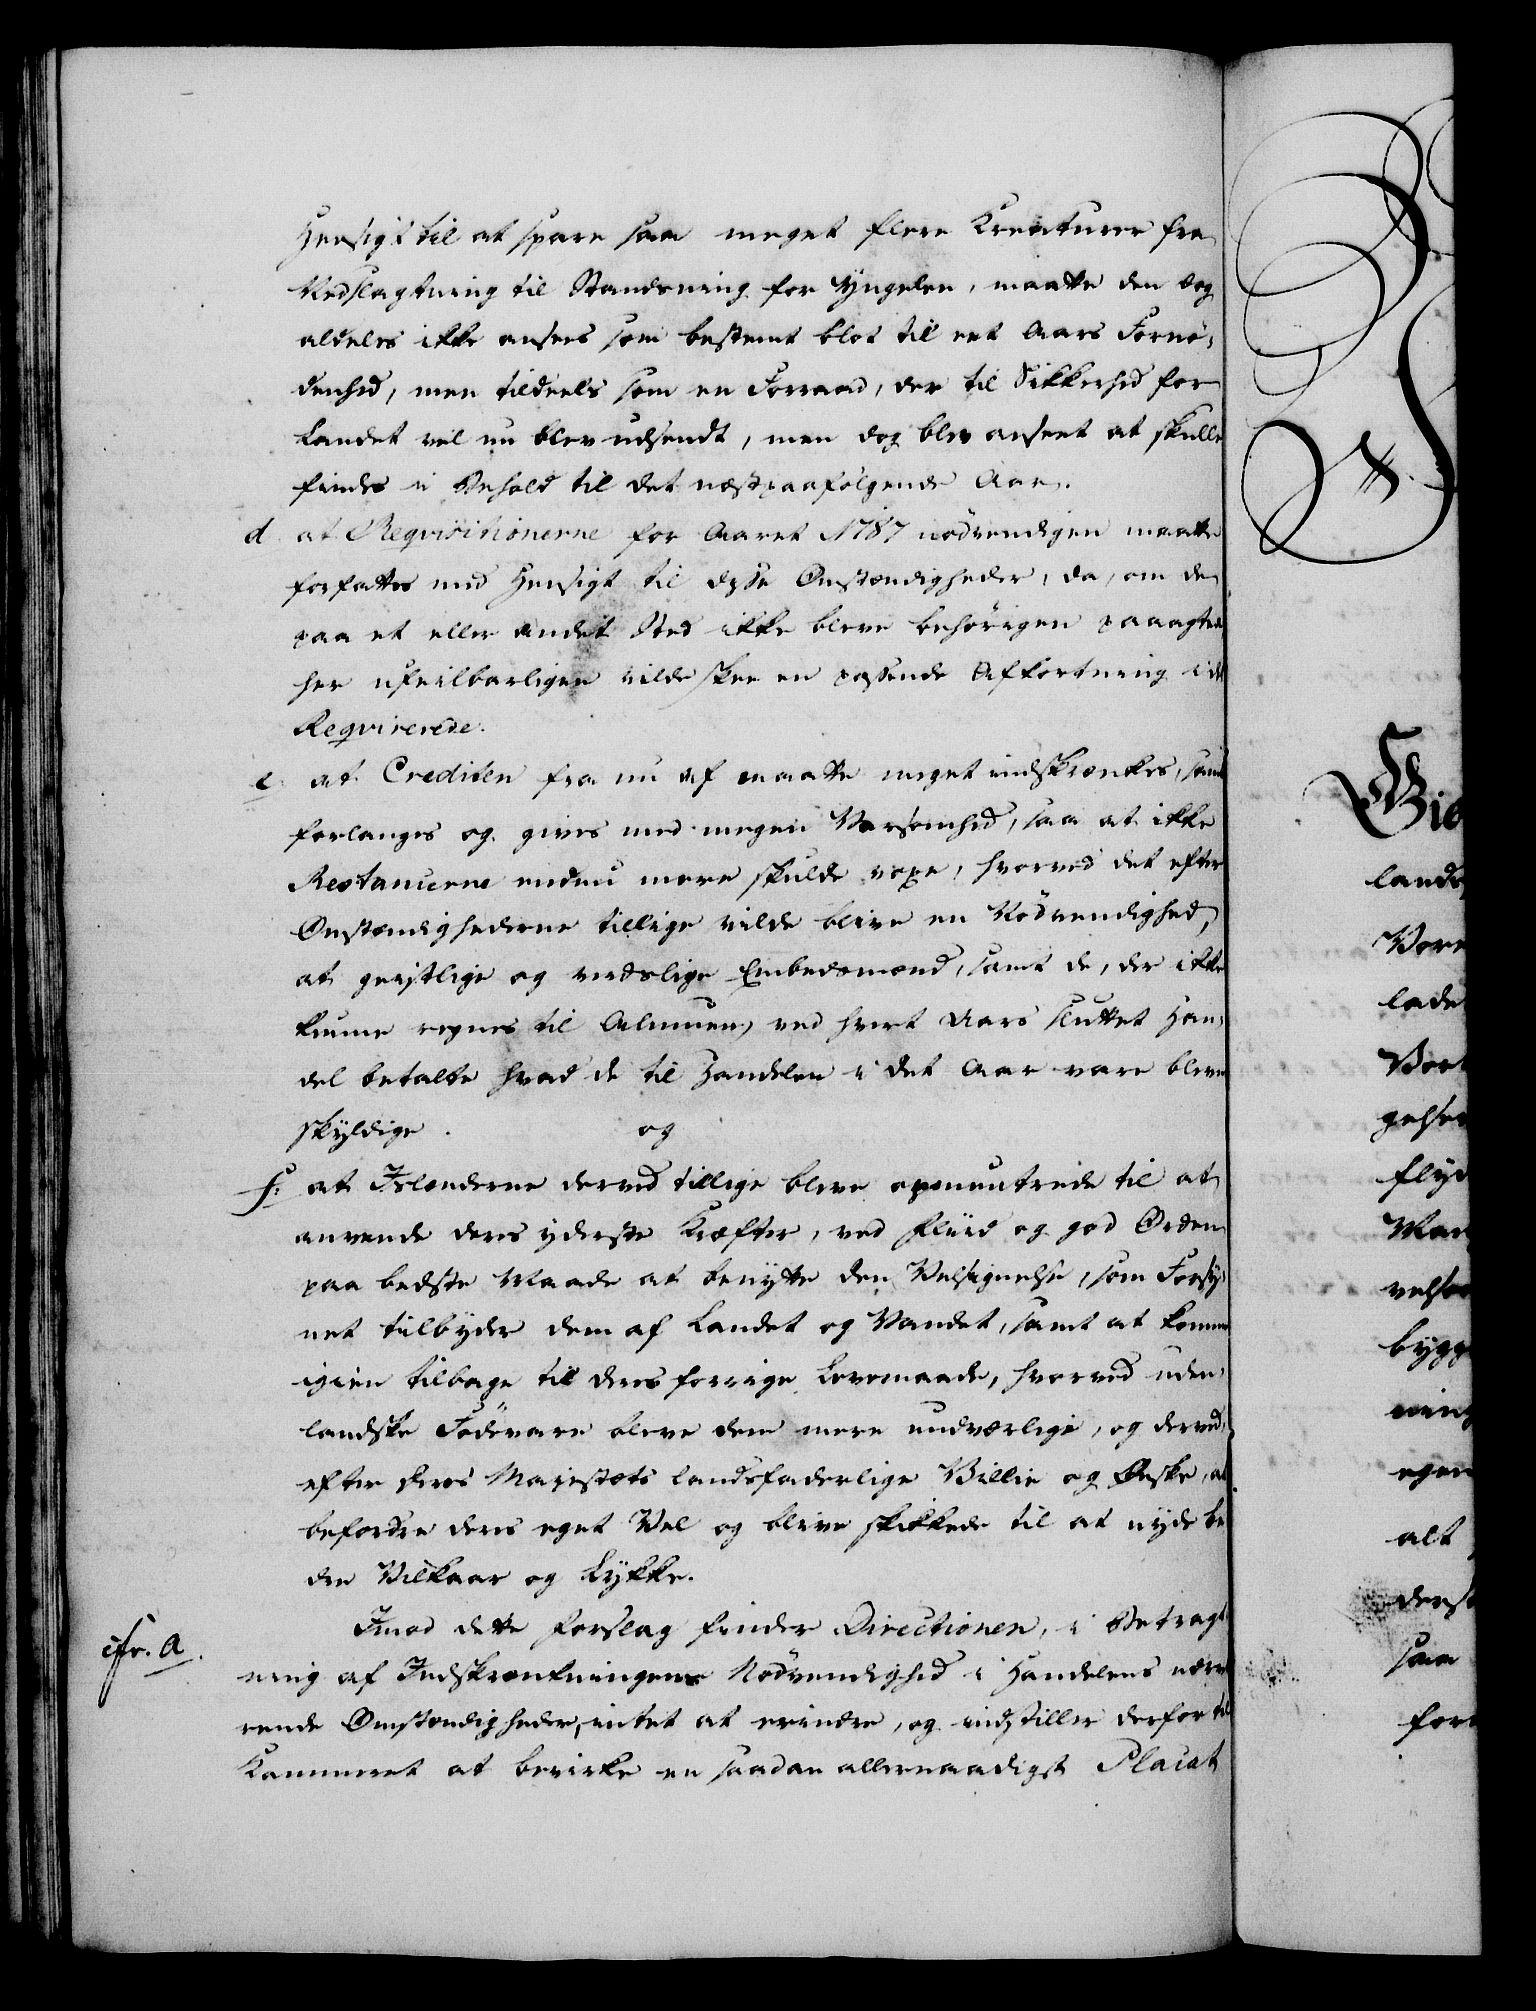 Hensigt til at spare saa meget flere Kreaturer fra
Nedslagtning til Standsning for Yngelen, maatte den dog
aldeles ikke ansees som bestemt blot til eet Aars Fornø-
denhed, men tildeels som en Forraad, der til Sikkerhed for
Landet vel nu blev udsendt, men dog blev anseet at skulle
findes i Behold til det næstpaafølgende Aar.
d. at Reqvisitionerne for Aaret 1787 nødvendigen maatte
forfattes med Hensigt til disse Omstændigheder, da, om de
paa et eller andet Sted ikke bleve behørigen paaagtede
her ufeilbarligen vilde skee en passende Affortning i det
Reqvirerede.
e. at Crediten fra nu af maatte meget indskrænkes, samt
forlanges og gives med megen Varsomhed, saa at ikke
Restancerne endnu mere skulde voxe, hvorved det efter
Omstændighederne tillige vilde blive en Nødvendighed,
at geistlige og verdslige Embedsmænd, samt de, der ikke
kunne regnes til Almuen, ved hvert Aars sluttet Han-
del betalte hvad de til Handelen i det Aar vare blevne
skyldige. og
f. at Islænderne derved tillige bleve opmuntrede til at
anvende deres yderste Kræfter, ved Fliid og god Orden
paa bedste Maade at benytte den Velsignelse, som Forsy-
net tilbyder dem af Landet og Vandet, samt at komme
igien tilbage til deres forrige Levemaade, hvorved uden-
landske Fødevare bleve dem mere undværlige, og derved,
efter Deres Majestæts landsfaderlige Villie og Ønske, at
befordre deres eget Vel og blive skikkede til at nyde be-
dre Vilkaar og Lykke.
cfr. A. Imod dette Forslag finder Directionen, i Betragt-
ning af Indskrænkningens Nødvendighed i Handelens nærvæ-
rende Omstændigheder, intet at erindre, og indstiller derfor til
Kammeret at bevirke en saadan allernaadigst Placat
landsf
Vore
lade
gelser
flyd
bygg
egen
alt
derst
saa
for